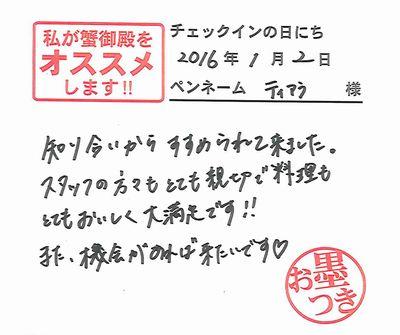 私が蟹御殿を
オススメ
します!!
チェックインの日にち
2016年 1月 2日
ペンネーム ティアラ 様
知り合いから すすめられて来ました。
スタッフの方々もとても親切で料理も
とてもおいしく大満足です!!
また、機会があれば来たいです♡
お墨つき